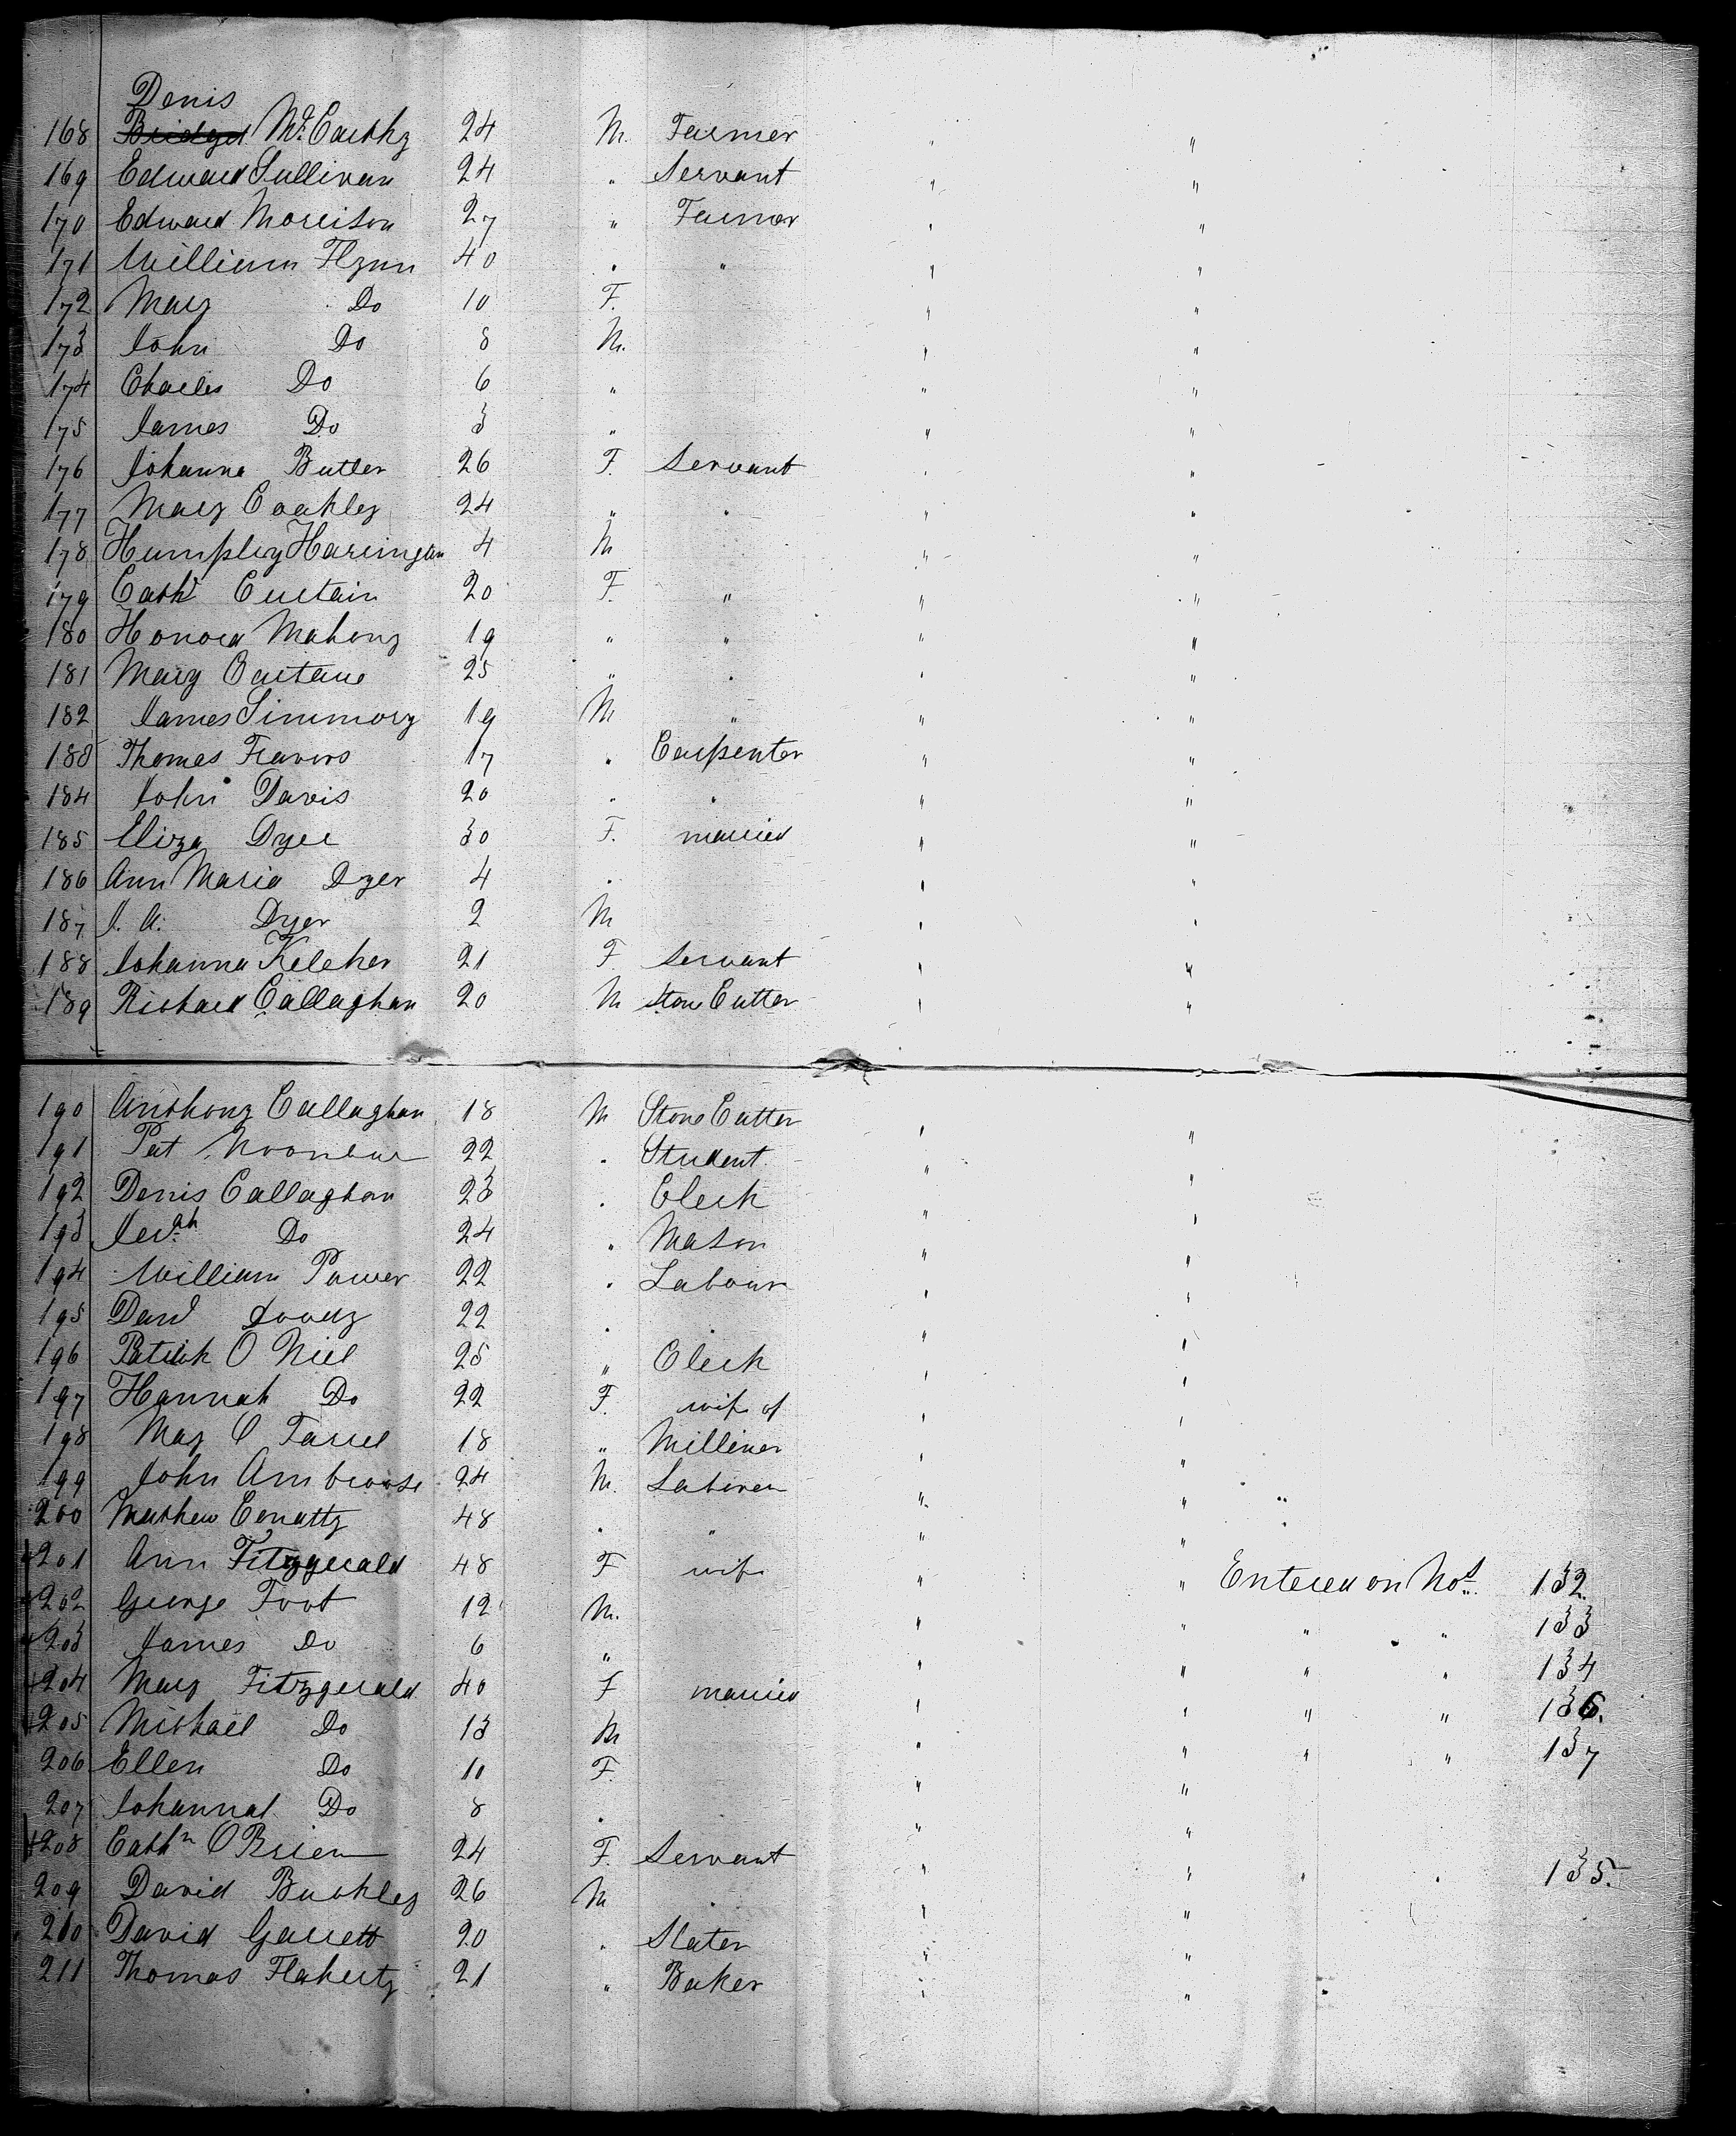 Denis
168 Bridget McCarthy 24 M. Farmer " "
169 Edward Sullivan 24 " Servant " "
170 Edward Morrison 27 " Farmer " "
171 William Flynn 40 " " " "
172 Mary Do 10 F. " "
173 John Do 8 M. " "
174 Charles Do 6 " " "
175 James Do 3 " " "
176 Johanna Butler 26 F. Servant " "
177 Mary Coakley 24 " " " "
178 Humphry Harringan 4 M " "
179 Cathr Curtain 20 F. " " "
180 Honora Mahony 19 " " " "
181 Mary 25 " " " "
182 James 19 M " " "
183 Thomas 17 " Carpenter " "
184 John Davis 20 " " " "
185 Eliza Dyer 30 F. married " "
186 Ann Maria Dyer 4 " " "
187 J. A. Dyer 2 M " "
188 Johanna Keleher 21 F Servant " "
189 Richard Callaghan 20 M Stone Cutter " "
190 Anthony Callaghan 18 M Stone Cutter " "
191 Pat 22 " Student " "
192 Denis Callaghan 23 " Clerk " "
193 Jerah Do 24 " Mason " "
194 William Power 22 " Labour " "
195 Dand 22 " " " "
196 Patrick O Niel 25 " Clerk " "
197 Hannah Do 22 F. wife of " "
198 May O Farrel 18 " Milliner " "
199 John Ambrouse 24 M. Laborer " "
200 Mathew 48 " " " "
201 Ann Fitzgerald 48 F wife " " Entered on Nos. 132
202 George Foot 12 M. " " " " 133
203 James Do 6 " " " " " 134
204 Mary Fitzgerald 40 F married " " " " 136.
205 Michael Do 13 M " " " " 137
206 Ellen Do 10 F. " "
207 Johannah Do 8 " " "
208 Cathn O Brien 24 F. Servant " " " " 135.
209 David Buckley 26 M " " "
210 David Garrett 20 " Slater " "
211 Thomas Flaherty 21 " Baker " "